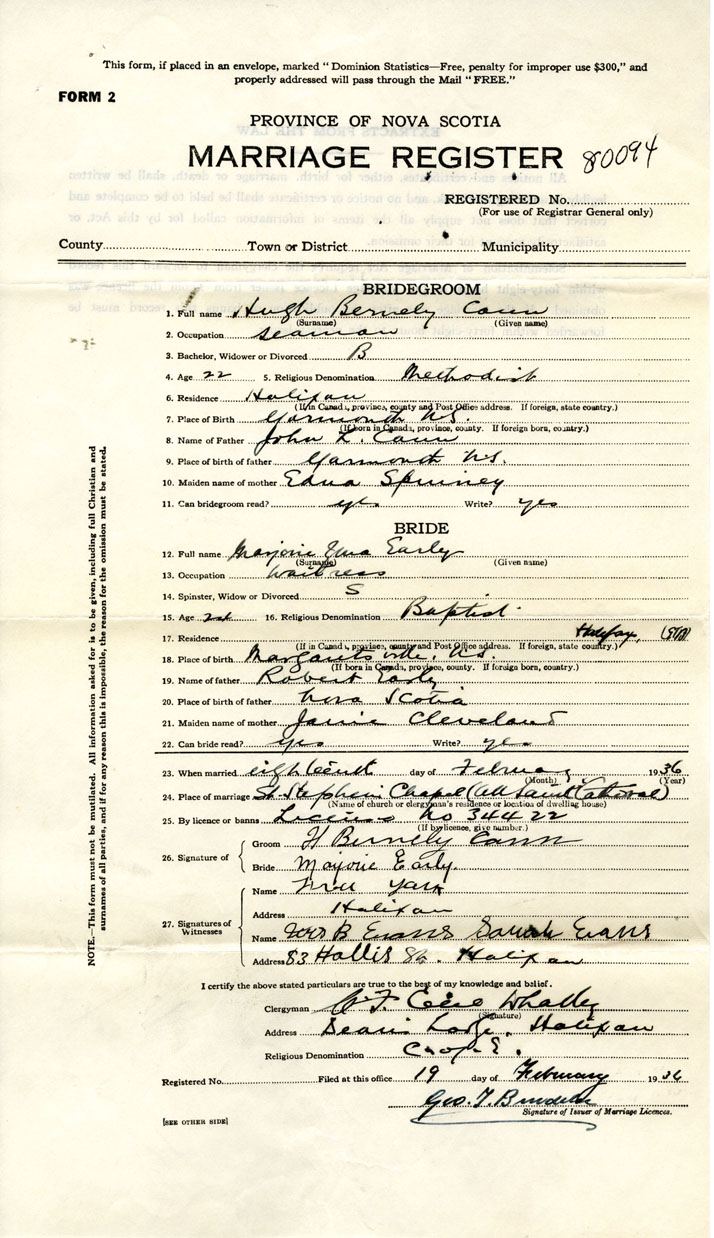 This form, if placed in an envelope, marked "Dominion Statistics—Free, penalty for improper use $300," and
properly addressed will pass through the Mail "FREE."
FORM 2
PROVINCE OF NOVA SCOTIA
MARRIAGE REGISTER 80094
REGISTERED No.
(For use of Registrar General only)
County Town or District Municipality
BRIDEGROOM
1. Full name Hugh Bernely Cann
(Surname) (Given name)
2. Occupation Seaman
3. Bachelor, Widower or Divorced B
4. Age 22 5. Religious Denomination Methodist
6. Residence Halifax
(If in Canada, province, county and Post Office address. If foreign, state country.)
7. Place of Birth Yarmouth N.S.
(If born in Canada, province, county. If foreign born, country.)
8. Name of Father John L. Cann
9. Place of birth of father Yarmouth N.S.
10. Maiden name of mother Edna Spinney
11. Can bridegroom read? yes Write? yes
BRIDE
12. Full name Marjorie Early
(Surname) (Given name)
13. Occupation Waitress
14. Spinster, Widow or Divorced S
15. Age 16. Religious Denomination Baptist
17. Residence Halifax,
(If in Canada, province, county and Post Office address. If foreign, state country.)
18. Place of birth Margaretsville N.S.
(If born in Canada, province, county. If foreign born, country.)
19. Name of father Robert Early
20. Place of birth of father Nova Scotia
21. Maiden name of mother Janie Cleveland
22. Can bride read? yes Write? yes
23. When married eighteenth day of February 1936
(Month) (Year)
24. Place of marriage St Stephen's Chapel (All Saints Cathedral)
(Name of church or clergyman's residence or location of dwelling house)
25. By licence or banns Licence No 34422
(If by licence, give number.)
26. Signature of
Groom H Bernely Cann
Bride Marjorie Early.
27. Signatures of Witnesses
Name
Address Halifax
Name Mrs B Evans Sarah Evans
Address 83 Hollis St. Halifax
I certify the above stated particulars are true to the best of my knowledge and belief.
Clergyman Whalley
(Signature)
Address Halifax
Religious Denomination C of E.
Registered No. Filed at this office 19 day of February 1936
Geo. T.
Signature of Issuer of Marriage Licences.
[SEE OTHER SIDE]
NOTE.—This form must not be mutilated. All information asked for is to be given, including full Christian and
surnames of all parties, and if for any reason this is impossible, the reason for the omission must be stated.